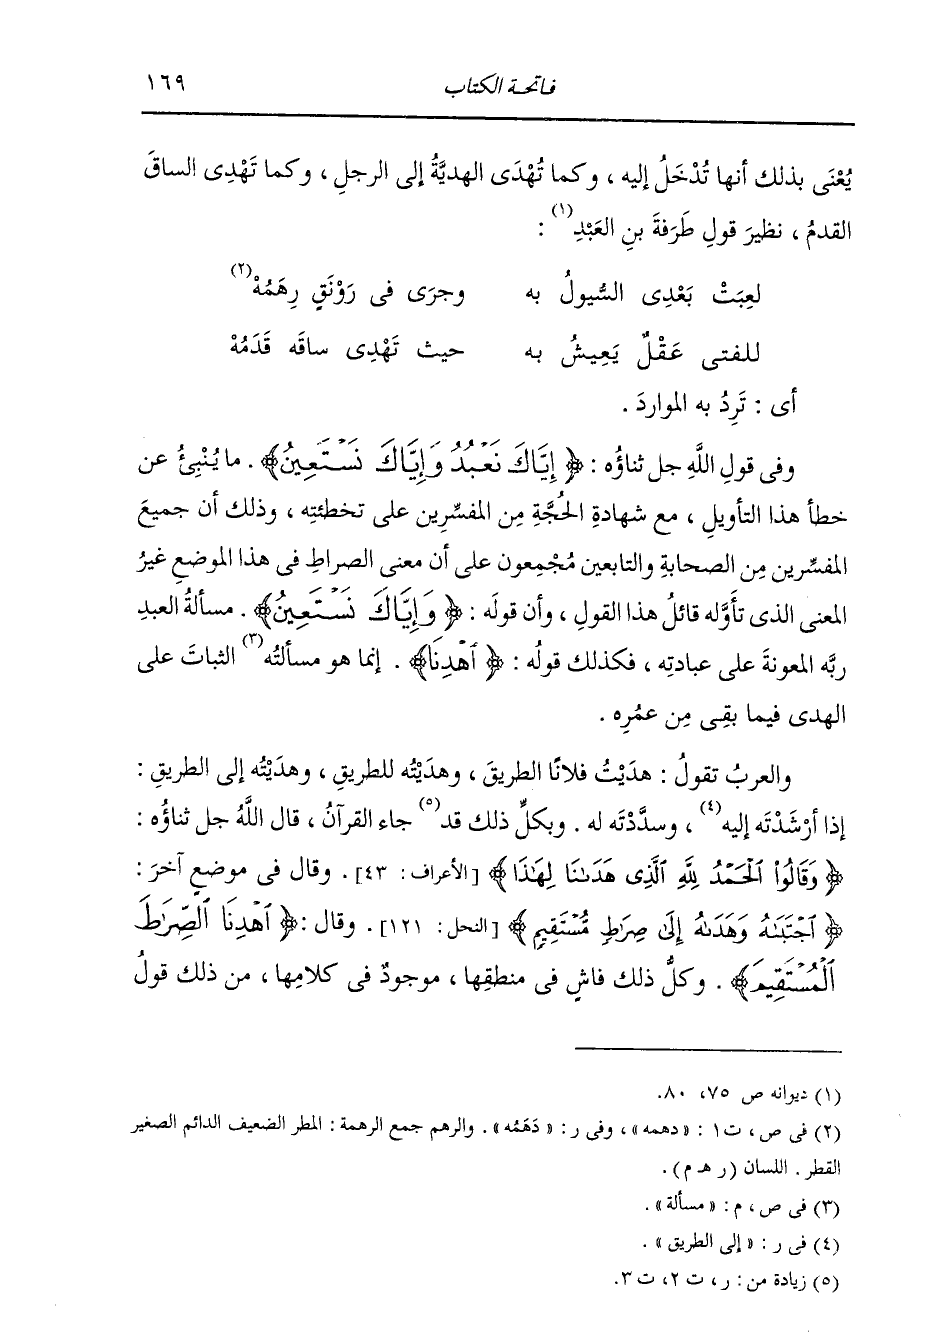 فاتحة الكتاب ١٦٩
يُعْنَى بذلك أنها تُدْخَلُ إليه ، وكما تُهْدَى الهديَّةُ إلى الرجلِ ، وكما تَهْدِى الساقَ
القدمُ ، نظيرَ قولِ طَرَفةَ بنِ العَبْدِ(١) :
لعِبَتْ بَعْدِى السُّيولُ به وجرَى فى رَوْنَقٍ رِهَمُهْ(٢)
للفتى عَقْلٌ يَعِيشُ به حيث تَهْدِى ساقَه قَدَمُهْ
أى : تَرِدُ به المواردَ .
وفى قولِ اللَّهِ جل ثناؤُه : ﴿ إِيَّاكَ نَعْبُدُ وَإِيَّاكَ نَسْتَعِينُ﴾ . ما يُنْبِئُ عن
خطأ هذا التأويلِ ، مع شهادةِ الحُجَّةِ مِن المفسِّرين على تخطئتِه ، وذلك أن جميعَ
المفسِّرين مِن الصحابةِ والتابعين مُجْمِعون على أن معنى الصراطِ فى هذا الموضعِ غيرُ
المعنى الذى تأَوَّله قائلُ هذا القولِ ، وأن قولَه : ﴿ وَإِيَّاكَ نَسْتَعِينُ﴾ . مسألةُ العبدِ
ربَّه المعونةَ على عبادتِه ، فكذلك قولُه : ﴿ ٱهْدِنَا﴾ . إنما هو مسألتُه(٣) الثباتَ على
الهدى فيما بقِى مِن عمُرِه .
والعربُ تقولُ : هدَيْتُ فلانًا الطريقَ ، وهدَيْتُه للطريقِ ، وهدَيْتُه إلى الطريقِ :
إذا أرْشَدْتَه إليه(٤) ، وسدَّدْتَه له . وبكلِّ ذلك قد(٥) جاء القرآنُ ، قال اللَّهُ جل ثناؤُه :
﴿ وَقَالُوا۟ ٱلْحَمْدُ لِلَّهِ ٱلَّذِى هَدَىٰنَا لِهَٰذَا﴾ [الأعراف: ٤٣] . وقال فى موضعٍ آخرَ :
﴿ ٱجْتَبَىٰهُ وَهَدَىٰهُ إِلَىٰ صِرَٰطٍ مُّسْتَقِيمٍ﴾ [النحل: ١٢١] . وقال : ﴿ ٱهْدِنَا ٱلصِّرَٰطَ
ٱلْمُسْتَقِيمَ﴾ . وكلُّ ذلك فاشٍ فى منطقِها ، موجودٌ فى كلامِها ، من ذلك قولُ
(١) ديوانه ص ٧٥، ٨٠.
(٢) فى ص ، ت ١ : « دهمه » ، وفى ر : « دَهَمُه » . والرهم جمع الرهمة : المطر الضعيف الدائم الصغير
القطر . اللسان (ر هـ م) .
(٣) فى ص ، م : « مسألة » .
(٤) فى ر : « إلى الطريق » .
(٥) زيادة من : ر ، ت ٢، ت ٣.